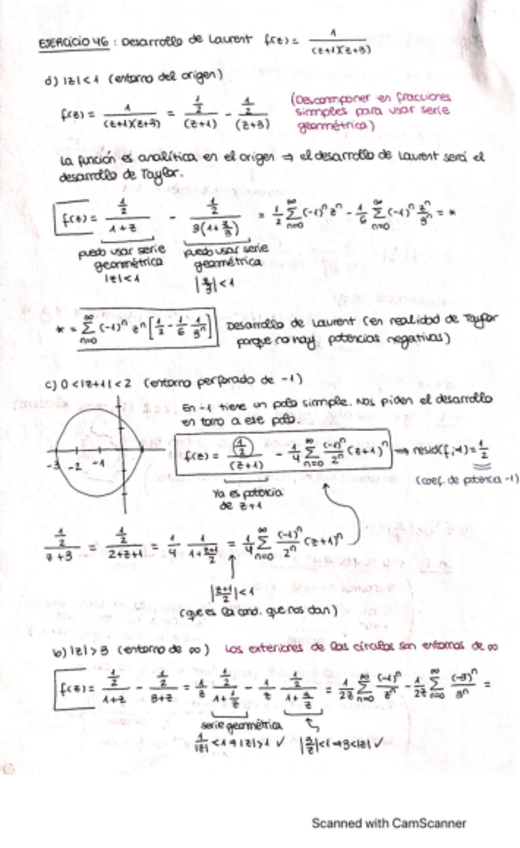 EJERCICIO 46 : Desarrollo de Laurent f(z) = 1/((z+1)(z+3))
d) |z| < 1 (entorno del origen)
f(z) = 1/((z+1)(z+3)) = (1/2)/(z+1) - (1/2)/(z+3) (Descomponer en fracciones
simples para usar serie
geométrica)
La función es analítica en el origen ⇒ el desarrollo de Laurent será el
desarrollo de Taylor.
f(z) = (1/2)/(1+z) - (1/2)/(3(1+z/3)) = 1/2 ∑_{n=0}^{∞} (-1)^n z^n - 1/6 ∑_{n=0}^{∞} (-1)^n z^n/3^n = *
puedo usar serie puedo usar serie
geométrica geométrica
|z| < 1 |z/3| < 1
* = ∑_{n=0}^{∞} (-1)^n z^n [1/2 - 1/6 1/3^n] Desarrollo de Laurent (en realidad de Taylor
porque no hay potencias negativas)
c) 0 < |z+1| < 2 (entorno perforado de -1)
En -1 tiene un polo simple. Nos piden el desarrollo
en torno a ese polo.
-3 -2 -1
f(z) = (1/2)/(z+1) - 1/4 ∑_{n=0}^{∞} (-1)^n/2^n (z+1)^n ⇒ resid(f,-1) = 1/2
(coef. de potencia -1)
Ya es potencia
de z+1
(1/2)/(z+3) = (1/2)/(2+z+1) = 1/4 1/(1+(z+1)/2) = 1/4 ∑_{n=0}^{∞} (-1)^n/2^n (z+1)^n
|(z+1)/2| < 1
(que es la cond. que nos dan)
b) |z| > 3 (entorno de ∞) Los exteriores de los círculos son entornos de ∞
f(z) = (1/2)/(1+z) - (1/2)/(3+z) = 1/z (1/2)/(1+1/z) - 1/z (1/2)/(1+3/z) = 1/2z ∑_{n=0}^{∞} (-1)^n/z^n - 1/2z ∑_{n=0}^{∞} (-3)^n/3^n =
serie geométrica
1/|z| < 1 → |z| > 1 ✓ |3/z| < 1 → 3 < |z| ✓
Scanned with CamScanner